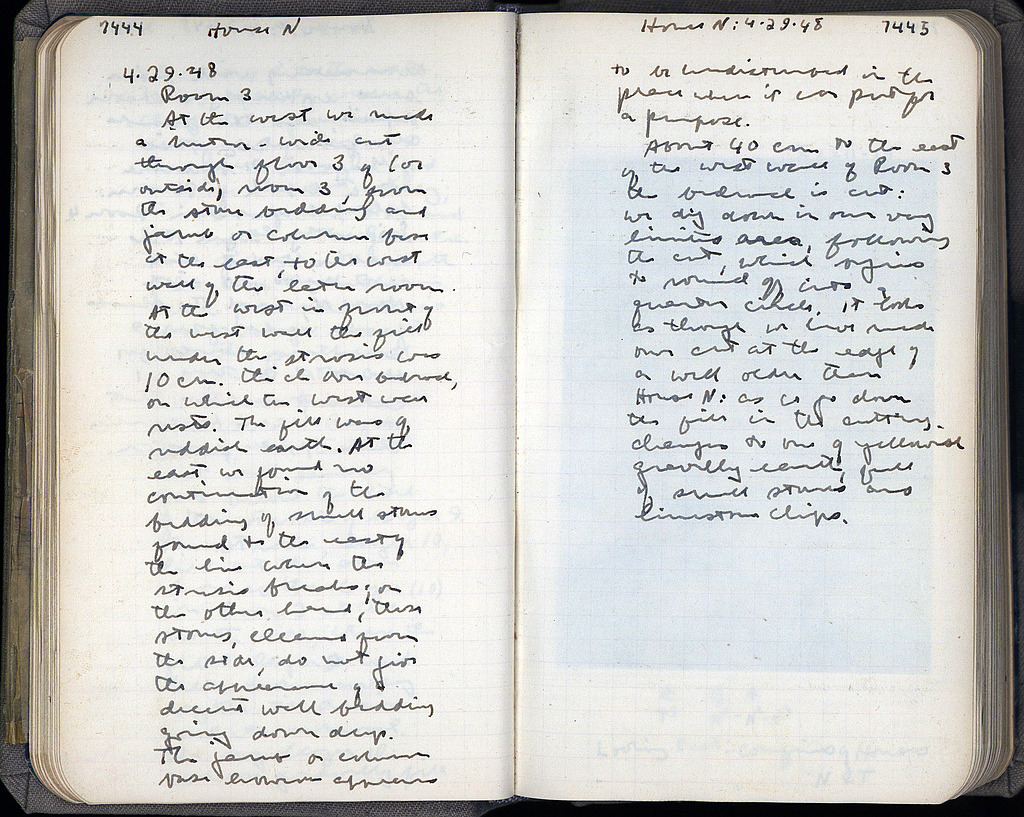 7444 House N
4.29.48
Room 3
At the west we made
a metre-wide cut
through floor 3 of (or
outside) room 3, from
the stone bedding and
jamb or column base
at the east, to the west
wall of the later room.
At the west in front of
the west wall the fill
under the strosis was
10 cm. thick over bedrock,
on which the west wall
rests. The fill was of
reddish earth. At the
east we found no
continuation of the
bedding of small stones
found to the east of
the line where the
strosis breaks; on
the other hand, those
stones, cleaned from
the side, do not give
the appearance of a
decent wall bedding
going down deep.
The jamb or column
base however appears
House N: 4.29.48 7445
to be undisturbed in the
place where it was put for
a purpose.
About 40 cm to the east
of the west wall of Room 3
the bedrock is cut:
we dig down in our very
limited area, following
the cut, which begins
to round off into a
quarter circle. It looks
as though we have made
our cut at the edge of
a well older than
House N: as we go down
the fill in the cutting
changes to one of yellowish
gravelly earth, full
of small stones and
limestone chips.